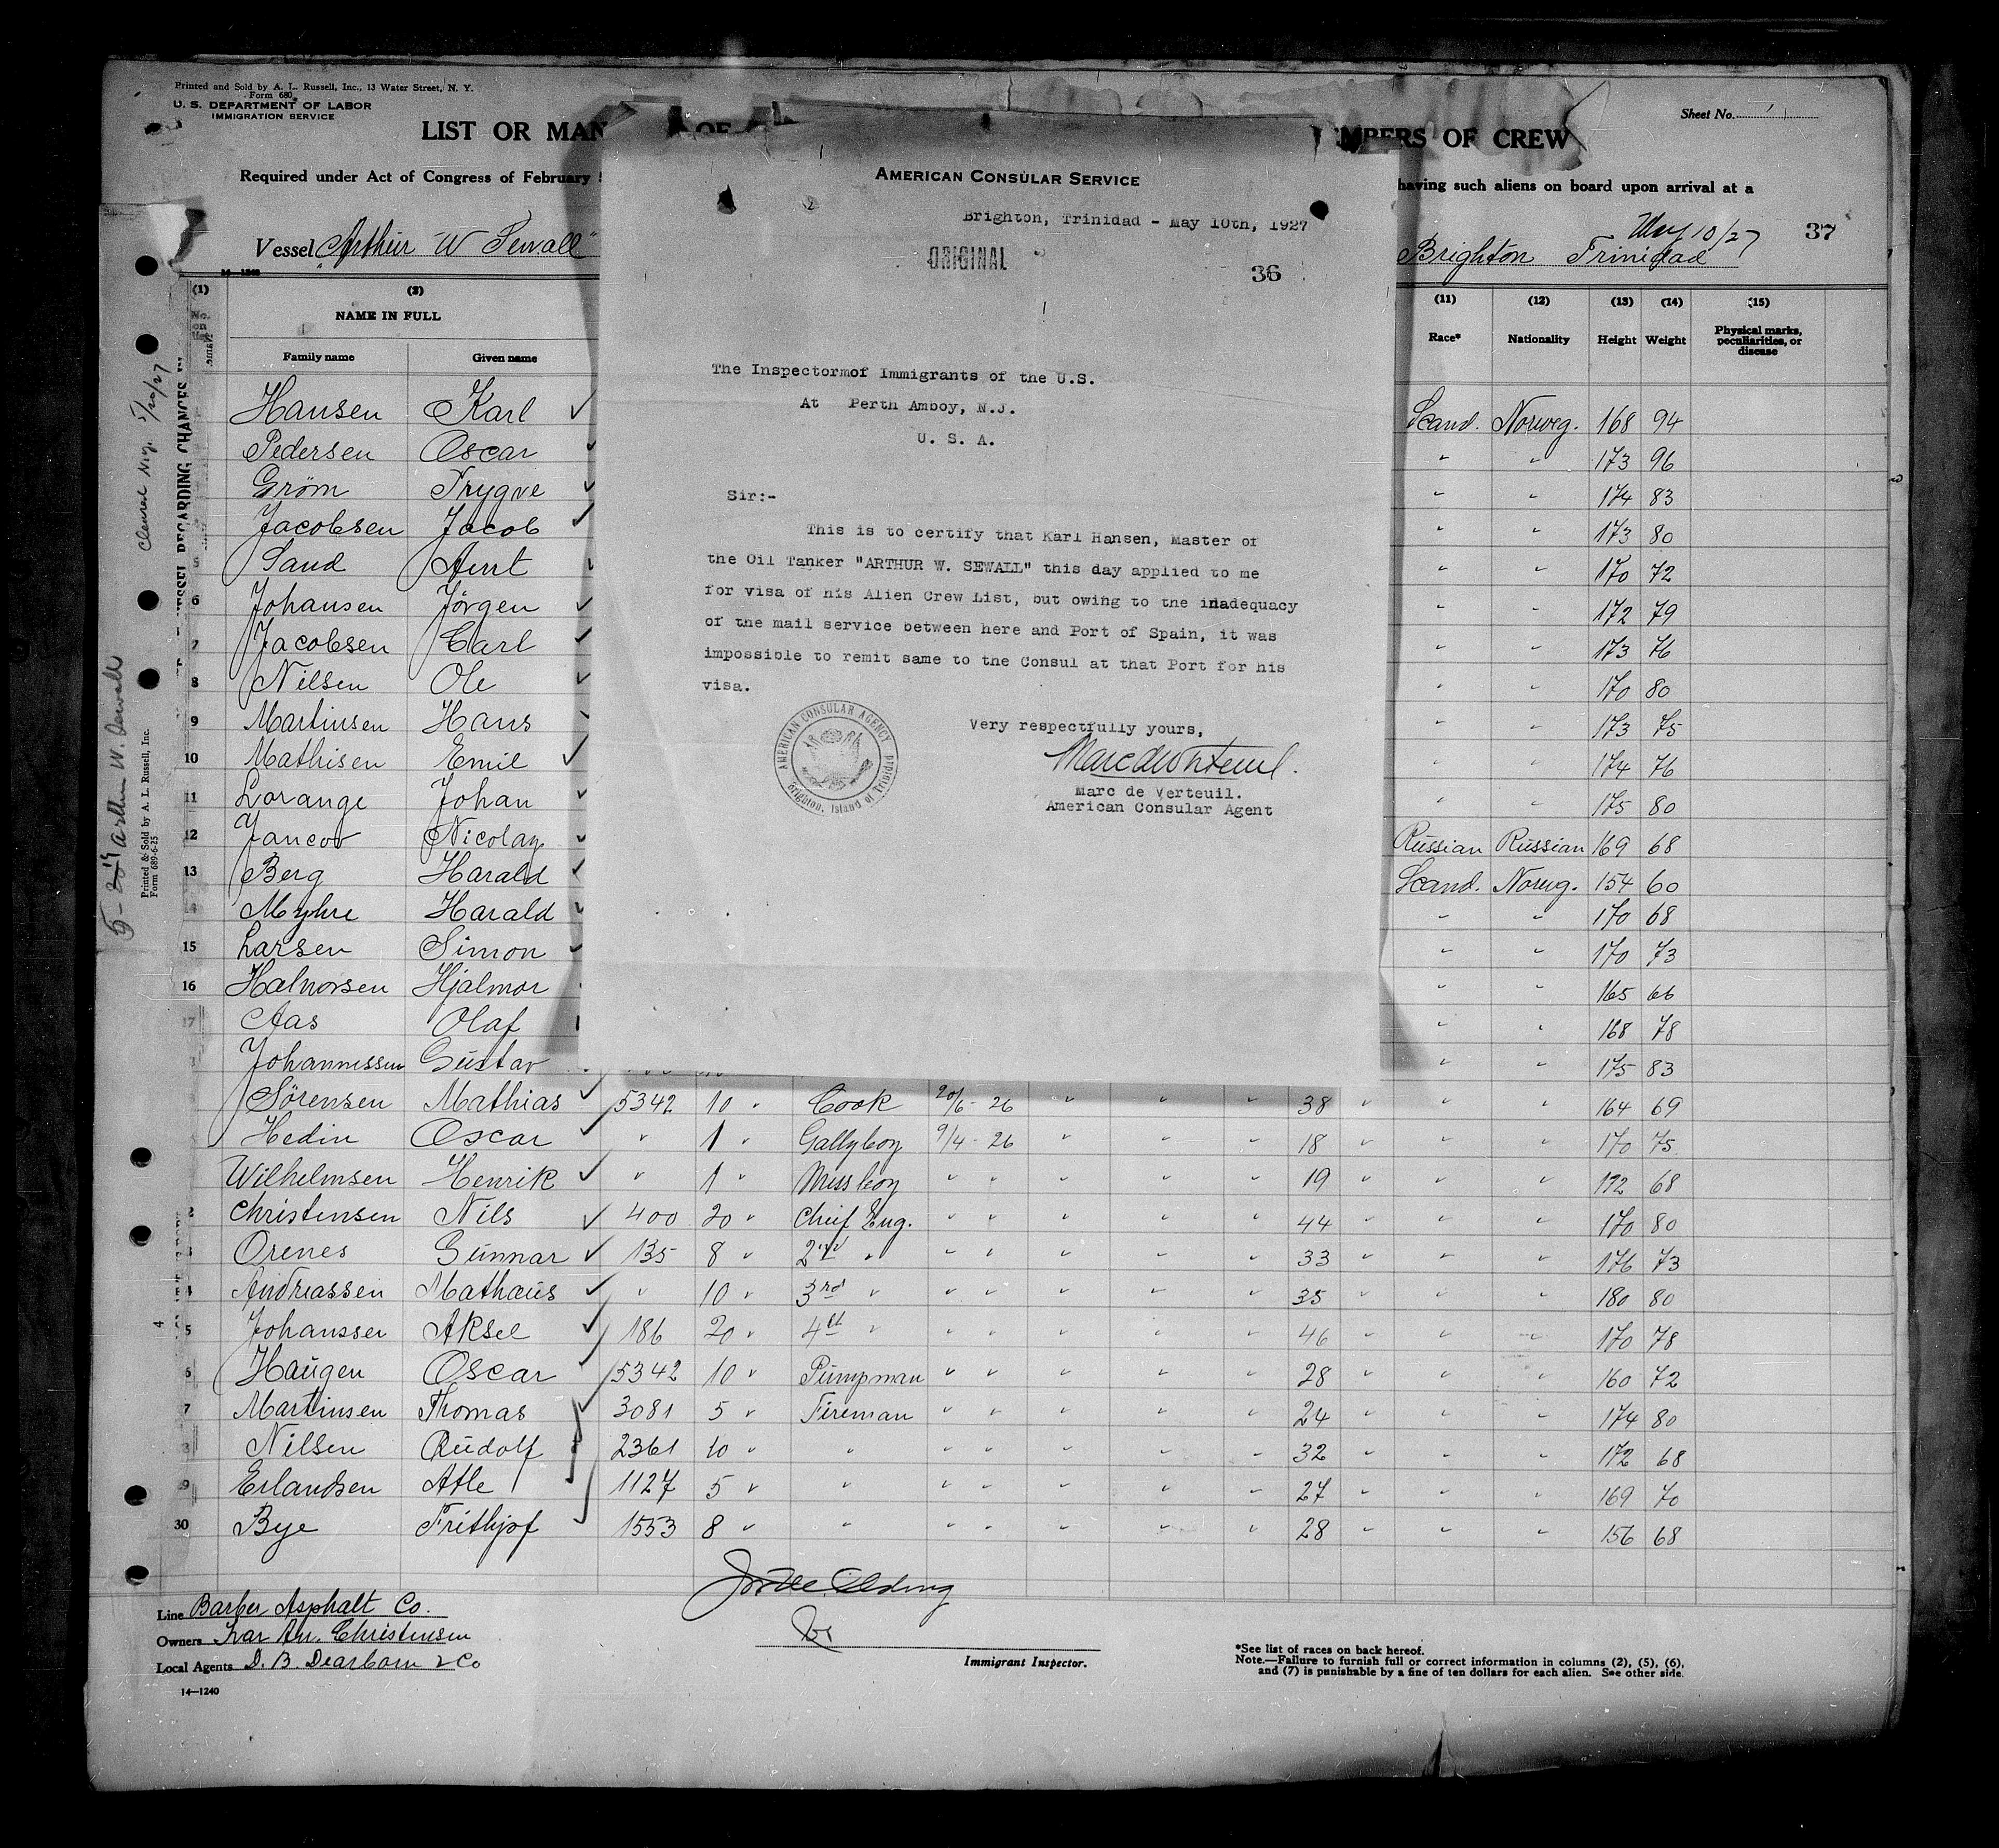 Printed and Sold by A. L. Russell, Inc., 13 Water Street, N. Y.
Form 680
U. S. DEPARTMENT OF LABOR
IMMIGRATION SERVICE
Sheet No. 1
LIST OR MAN OF MBERS OF CREW
Required under Act of Congress of February having such aliens on board upon arrival at a
Vessel "Arthur W Sewall" Brighton Trinidad May 10/27 37
AMERICAN CONSULAR SERVICE
Brighton, Trinidad - May 10th, 1927
ORIGINAL
36
The Inspectormof Immigrants of the U.S.
At Perth Amboy, N.J.
U. S. A.
Sir:-
This is to certify that Karl Hansen, Master of
the Oil Tanker "ARTHUR W. SEWALL" this day applied to me
for visa of his Alien Crew List, but owing to the inadequacy
of the mail service between here and Port of Spain, it was
impossible to remit same to the Consul at that Port for his
visa.
Very respectfully yours,
Marc de Verteuil.
American Consular Agent
AMERICAN CONSULAR AGENCY
Brighton, Island of Trinidad
(1) (2) (11) (12) (13) (14) (15)
No. on NAME IN FULL Race* Nationality Height Weight Physical marks, peculiarities, or disease
Family name Given name
Hansen Karl ✓ Scand. Norweg. 168 94
Pedersen Oscar ✓ " " 173 96
Gröm Trygve ✓ " " 174 83
Jacobsen Jacob ✓ " " 173 80
5 Sand Arnt ✓ " " 170 72
6 Johansen Jörgen ✓ " " 172 79
7 Jacobsen Carl ✓ " " 173 76
8 Nilsen Ole ✓ " " 170 80
9 Martinsen Hans ✓ " " 173 75
10 Mathisen Emil ✓ " " 174 76
11 Lorange Johan ✓ " " 175 80
12 Jancov Nicolay ✓ Russian Russian 169 68
13 Berg Harald ✓ Scand. Norwg. 154 60
14 Myhre Harald ✓ " " 170 68
15 Larsen Simon ✓ " " 170 73
16 Halvorsen Hjalmar " " 165 66
17 Aas Olaf " " 168 78
Johannessen Gustav " " 175 83
Sörensen Mathias ✓ 5342 10 " Cook 20/6-26 " " " 38 " " " 164 69
Hedin Oscar ✓ " 1 " Gallyboy 9/4-26 " " " 18 " " " 170 75
Wilhelmsen Henrik ✓ " 1 " Messboy " " " " " 19 " " " 172 68
2 Christensen Nils ✓ 400 20 " Cheif Eng. " " " " " 44 " " " 170 80
3 Orenes Gunnar ✓ 135 8 " 2nd " " " " " " 33 " " " 176 73
4 Andreassen Mathaus ✓ " 10 " 3rd " " " " " " 35 " " " 180 80
5 Johanssen Aksel ✓ 186 20 " 4th " " " " " " 46 " " " 170 78
6 Haugen Oscar ✓ 5342 10 " Pumpman " " " " " 28 " " " 160 72
7 Martinsen Thomas ✓ 3081 5 " Fireman " " " " " 24 " " " 174 80
8 Nilsen Rudolf ✓ 2361 10 " " " " " " " 32 " " " 172 68
9 Erlandsen Atle ✓ 1127 5 " " " " " " " 27 " " " 169 70
30 Bye Frithjof ✓ 1553 8 " " " " " " " 28 " " " 156 68
Line Barber Asphalt Co.
Owners Ivar An. Christensen
Local Agents D. B. Dearborn & Co
14—1240
Immigrant Inspector.
*See list of races on back hereof.
Note.—Failure to furnish full or correct information in columns (2), (5), (6),
and (7) is punishable by a fine of ten dollars for each alien. See other side.
Cleared N.Y. 5/20/27
VESSEL REGARDING CHANGES IN
Arthur W. Sewall
Printed & Sold by A. L. Russell, Inc.
Form 689-6-25